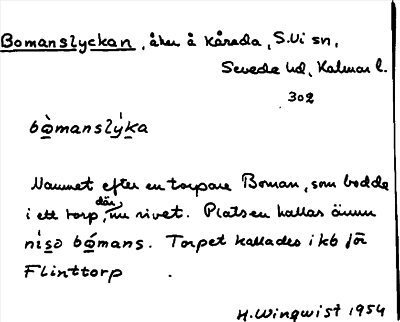 Bomanslyckan, åker å Kåreda, S.Vi sn,
Sevede hd, Kalmar l.
302
bo̲̊̀manslý̲ka
Namnet efter en torpare Boman, som bodde
där
i ett torp, nu rivet. Platsen kallas ännu
bo̲̊́mans. Torpet kallades i kb för
Flinttorp.
H. Winqwist 1954